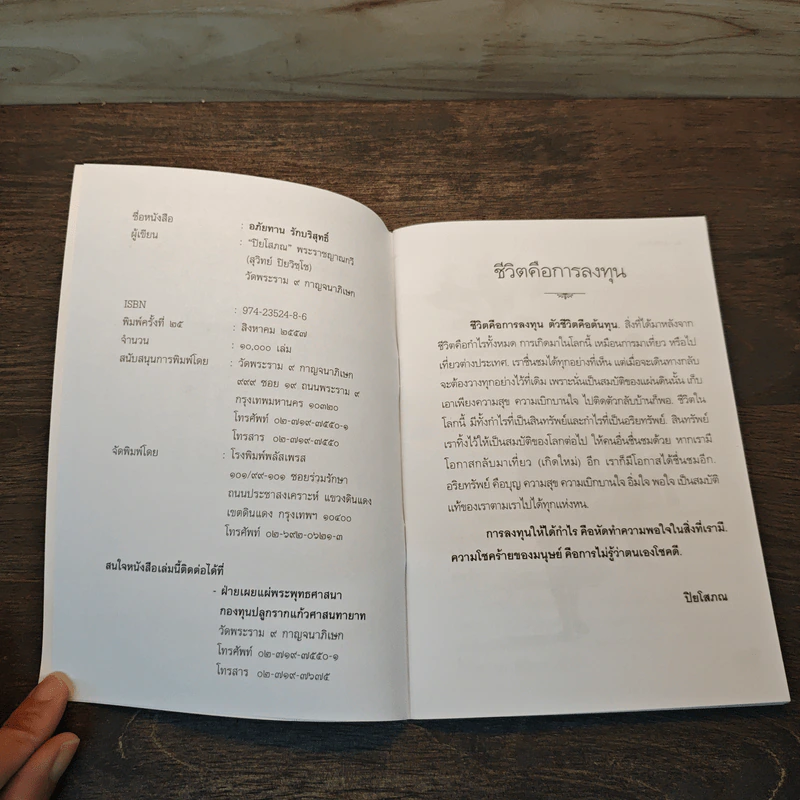 ชื่อหนังสือ : อภัยทาน รักบริสุทธิ์
ผู้เขียน : "ปิยโสภณ" พระราชญาณกวี
(สุวิทย์ ปิยวิชฺโช)
วัดพระราม ๙ กาญจนาภิเษก
ISBN : 974-23524-8-6
พิมพ์ครั้งที่ ๒๕ : สิงหาคม ๒๕๕๗
จำนวน : ๑๐,๐๐๐ เล่ม
สนับสนุนการพิมพ์โดย : วัดพระราม ๙ กาญจนาภิเษก
๙๙๙ ซอย ๑๙ ถนนพระราม ๙
กรุงเทพมหานคร ๑๐๓๒๐
โทรศัพท์ ๐๒-๗๑๙-๗๕๕๐-๑
โทรสาร ๐๒-๗๑๙-๗๕๕๐
จัดพิมพ์โดย : โรงพิมพ์พลัสเพรส
๑๐๑/๙๙-๑๐๑ ซอยร่วมรักษา
ถนนประชาสงเคราะห์ แขวงดินแดง
เขตดินแดง กรุงเทพฯ ๑๐๔๐๐
โทรศัพท์ ๐๒-๖๙๒-๐๖๒๑-๓
สนใจหนังสือเล่มนี้ติดต่อได้ที่
- ฝ่ายเผยแผ่พระพุทธศาสนา
กองทุนปลูกรากแก้วศาสนทายาท
วัดพระราม ๙ กาญจนาภิเษก
โทรศัพท์ ๐๒-๗๑๙-๗๕๕๐-๑
โทรสาร ๐๒-๗๑๙-๗๖๗๕
ชีวิตคือการลงทุน
ชีวิตคือการลงทุน ตัวชีวิตคือต้นทุน. สิ่งที่ได้มาหลังจาก
ชีวิตคือกำไรทั้งหมด การเกิดมาในโลกนี้ เหมือนการมาเที่ยว หรือไป
เที่ยวต่างประเทศ. เราชื่นชมได้ทุกอย่างที่เห็น แต่เมื่อจะเดินทางกลับ
จะต้องวางทุกอย่างไว้ที่เดิม เพราะนั่นเป็นสมบัติของแผ่นดินนั้น เก็บ
เอาเพียงความสุข ความเบิกบานใจ ไปติดตัวกลับบ้านก็พอ. ชีวิตใน
โลกนี้ มีทั้งกำไรที่เป็นสินทรัพย์และกำไรที่เป็นอริยทรัพย์. สินทรัพย์
เราทิ้งไว้ให้เป็นสมบัติของโลกต่อไป ให้คนอื่นชื่นชมด้วย หากเรามี
โอกาสกลับมาเที่ยว (เกิดใหม่) อีก เราก็มีโอกาสได้ชื่นชมอีก.
อริยทรัพย์ คือบุญ ความสุข ความเบิกบานใจ อิ่มใจ พอใจ เป็นสมบัติ
แท้ของเราตามเราไปได้ทุกแห่งหน.
การลงทุนให้ได้กำไร คือหัดทำความพอใจในสิ่งที่เรามี.
ความโชคร้ายของมนุษย์ คือการไม่รู้ว่าตนเองโชคดี.
ปิยโสภณ